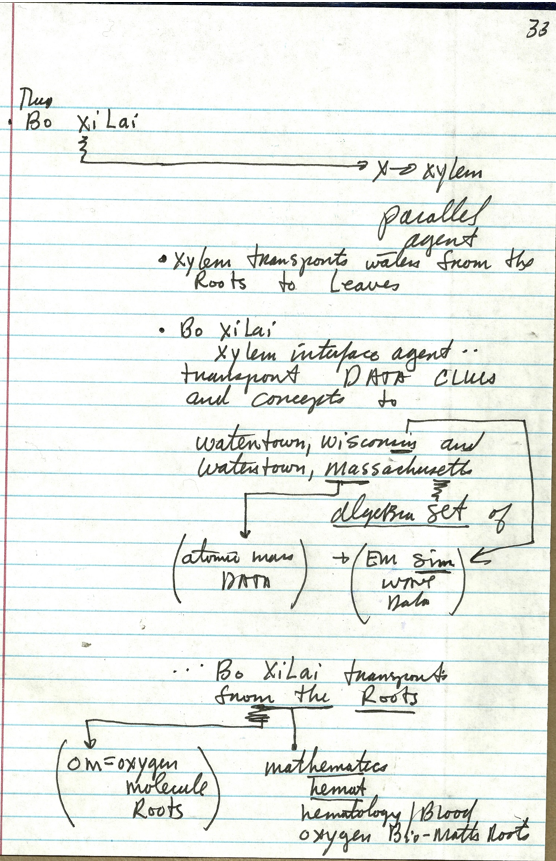 33
Thus
• Bo XiLai
X → xylem
parallel
agent
• Xylem transports waters from the
Roots to Leaves
• Bo XiLai
xylem interface agent ..
transport DATA CLUES
and concepts to
watertown, wisconsin and
waterstown, massachusetts
algebra set of
(atomic mass
DATA)
+ (EM sin
wave
Data)
... Bo XiLai transports
from the Roots
(OM = oxygen
molecule
Roots)
mathematics
hemat
hematology / Blood
oxygen Bio-Maths Roots